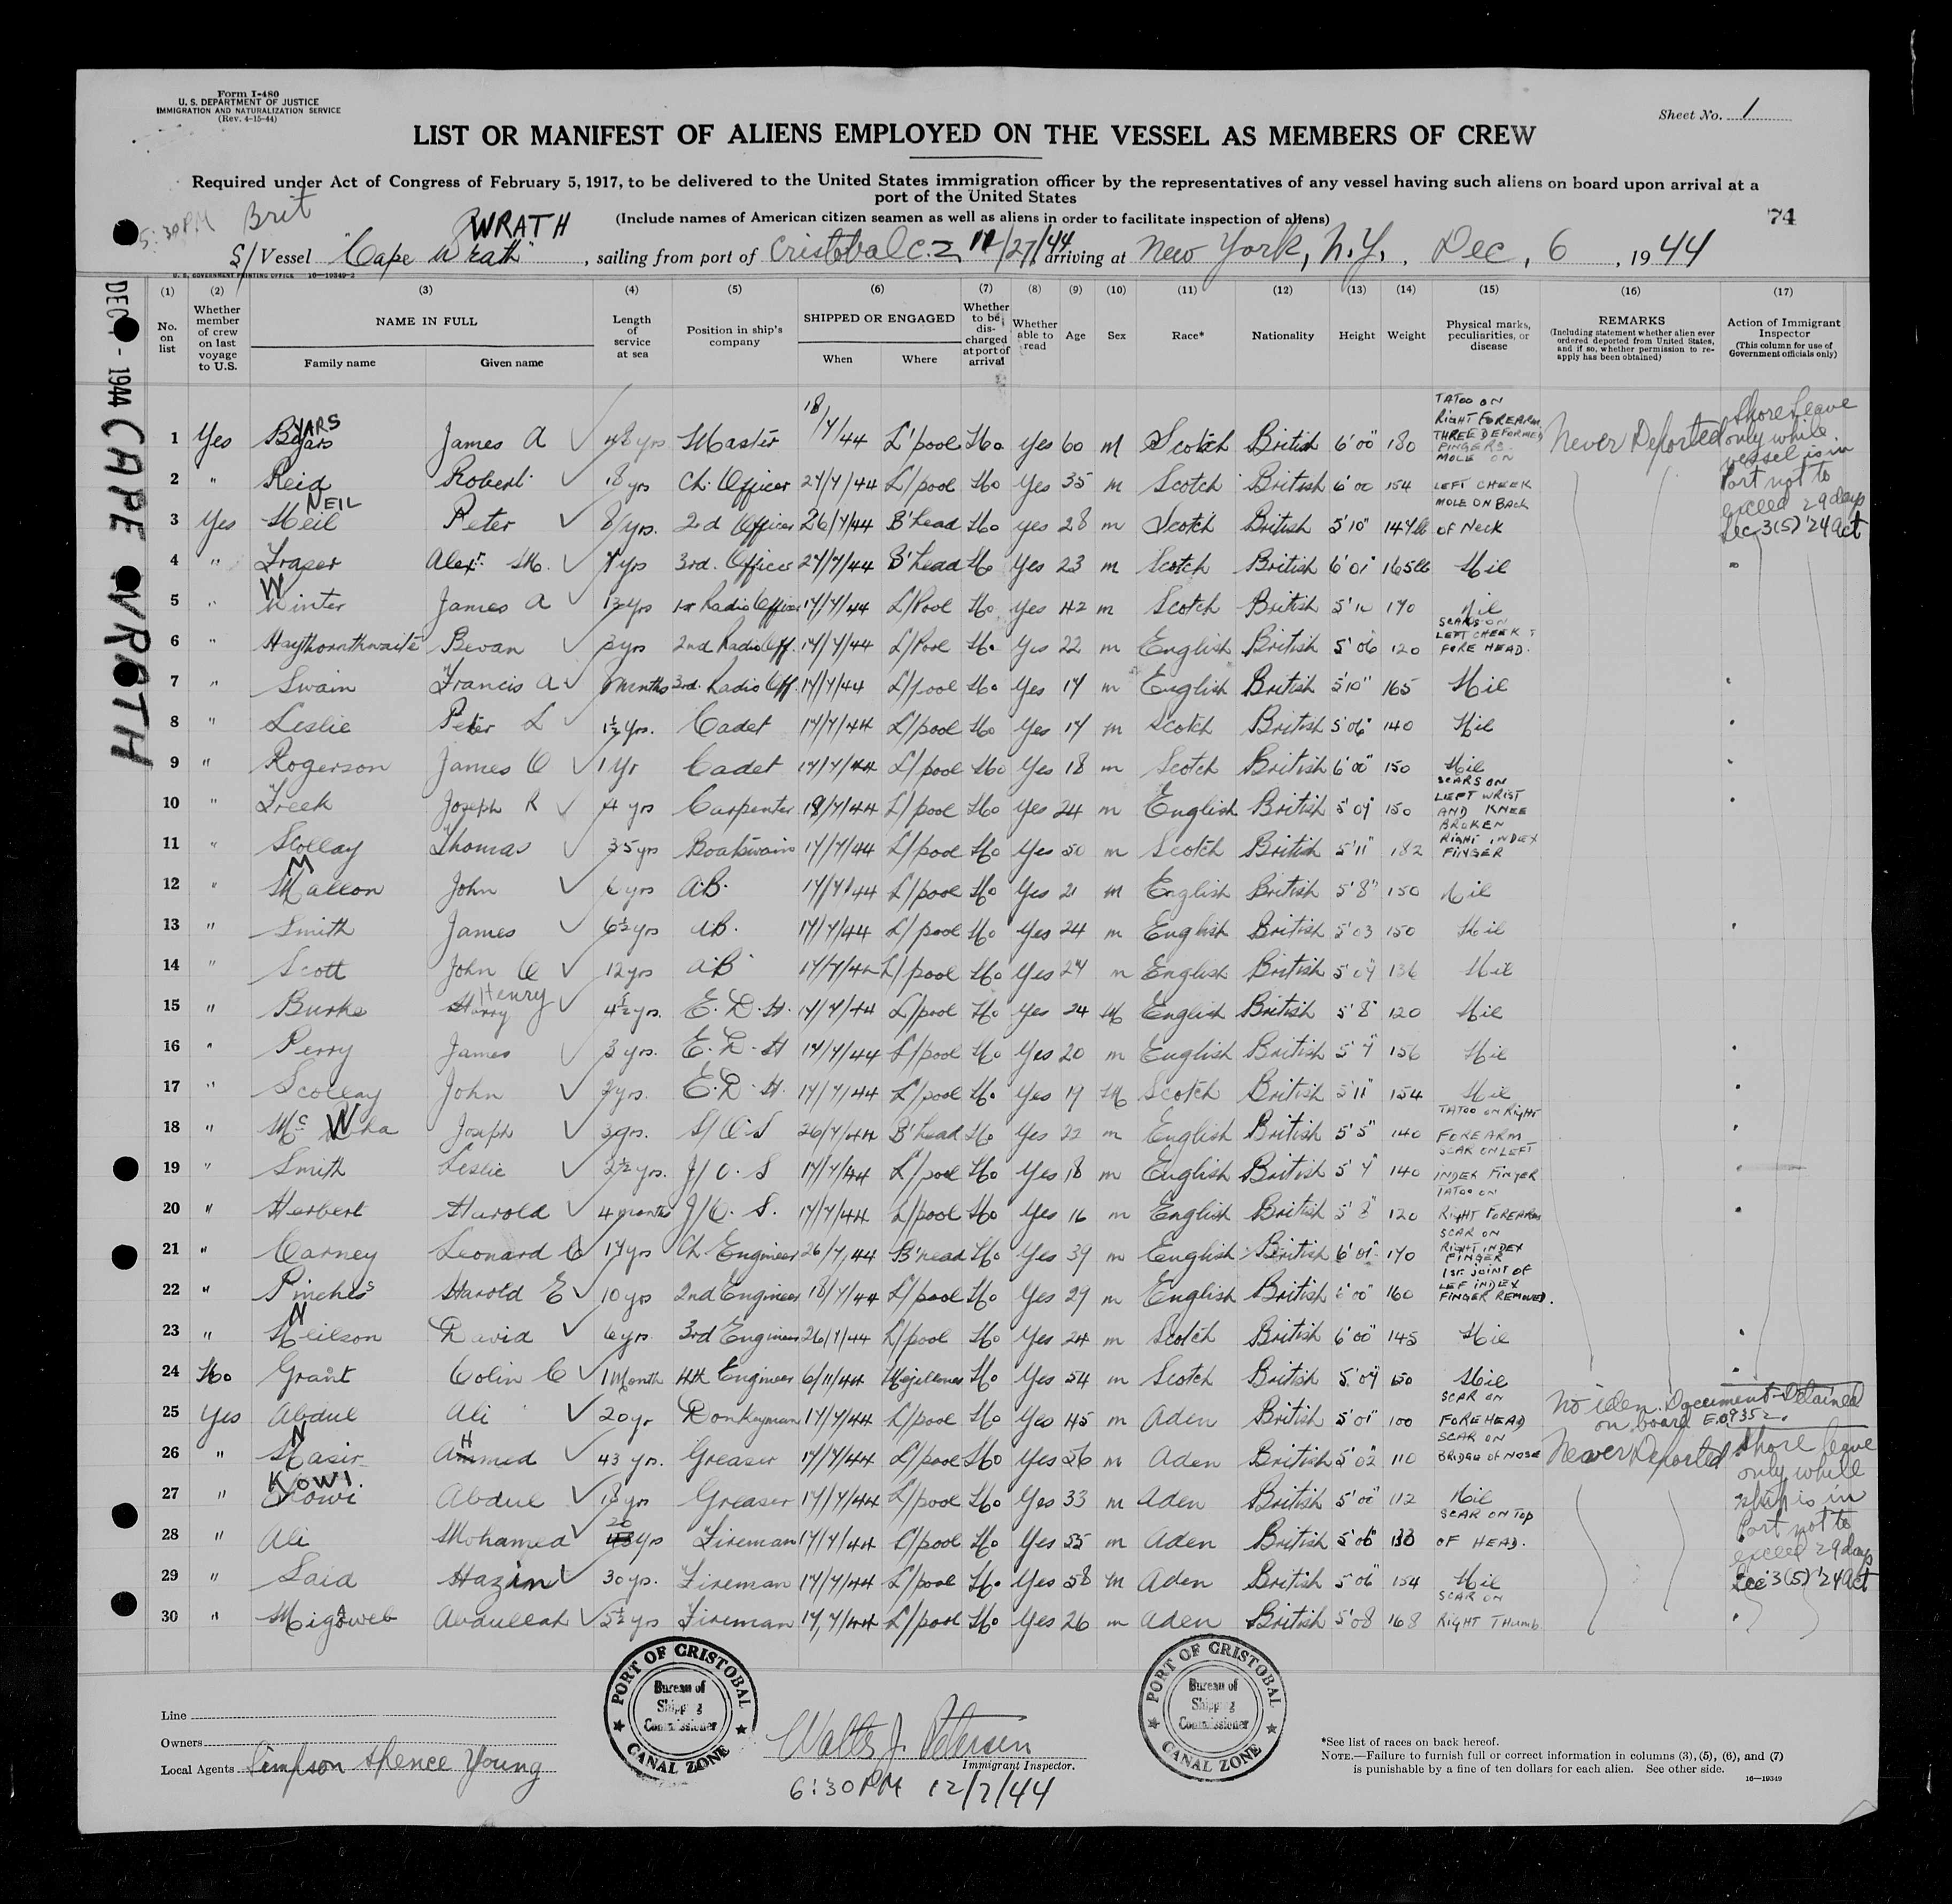 Form I-480
U. S. DEPARTMENT OF JUSTICE
IMMIGRATION AND NATURALIZATION SERVICE
(Rev. 4-15-44)
Sheet No. 1
LIST OR MANIFEST OF ALIENS EMPLOYED ON THE VESSEL AS MEMBERS OF CREW
Required under Act of Congress of February 5, 1917, to be delivered to the United States immigration officer by the representatives of any vessel having such aliens on board upon arrival at a
port of the United States
(Include names of American citizen seamen as well as aliens in order to facilitate inspection of aliens)
74
5:30 PM Brit
WRATH
S/Vessel "Cape Wrath", sailing from port of Cristobal C.Z. 11/27/44, arriving at New York, N.Y., Dec, 6, 1944
U. S. GOVERNMENT PRINTING OFFICE 16-19349-2
DEC - 1944 CAPE WRATH
(1) (2) (3) (4) (5) (6) (7) (8) (9) (10) (11) (12) (13) (14) (15) (16) (17)
No. on list
Whether member of crew on last voyage to U.S.
NAME IN FULL
Family name Given name
Length of service at sea
Position in ship's company
SHIPPED OR ENGAGED
When Where
Whether to be discharged at port of arrival
Whether able to read
Age
Sex
Race*
Nationality
Height
Weight
Physical marks, peculiarities, or disease
REMARKS
(Including statement whether alien ever ordered deported from United States, and if so, whether permission to reapply has been obtained)
Action of Immigrant Inspector
(This column for use of Government officials only)
1 Yes Byars BYARS James A 48 yrs Master 18/7/44 L'pool No Yes 60 M Scotch British 6'00 180 TATOO ON RIGHT FOREARM THREE DEFORMED FINGERS Never Deported Shore leave only while vessel is in Port not to exceed 29 days Sec 3(5) '24 act
2 " Reid Robert 18 yrs Ch. Officer 27/7/44 L/pool No Yes 35 m Scotch British 6'00 154 MOLE ON LEFT CHEEK
3 Yes Neil NEIL Peter 8 yrs. 2nd Officer 26/7/44 B'head No yes 28 m Scotch British 5'10" 147 lb MOLE ON BACK OF NECK
4 " Fraser Alexr. M. 7 yrs 3rd. Officer 27/7/44 B'head No Yes 23 m Scotch British 6'01" 165 lb Nil
5 " Winter James A yrs 1st Radio Officer 17/7/44 L/Pool No Yes 42 m Scotch British 170 Nil
6 " Haythornthwaite Bevan yrs 2nd Radio Off. 17/7/44 L/Pool No Yes 22 m English British 5'06 120 SCARS ON LEFT CHEEK & FOREHEAD.
7 " Swain Francis A months 3rd. Radio Off. 17/7/44 L/pool No Yes 17 m English British 5'10" 165 Nil
8 " Leslie Peter L 1½ yrs. Cadet 17/7/44 L/pool No Yes 17 m Scotch British 5'06" 140 Nil
9 " Rogerson James 1 yr Cadet 17/7/44 L/pool No Yes 18 m Scotch British 6'00" 150 Nil
10 " Joseph R 4 yrs Carpenter 18/7/44 L/pool No Yes 24 m English British 5'07" 150 SCARS ON LEFT WRIST AND KNEE
11 " Scollay Thomas 35 yrs Boatswain 17/7/44 L/pool No Yes 50 m Scotch British 5'11" 182 BROKEN RIGHT INDEX FINGER
12 " Mallon John 6 yrs A.B. 17/7/44 L/pool No Yes 21 m English British 5'8" 150 Nil
13 " Smith James 6½ yrs A.B. 17/7/44 L/pool No Yes 24 m English British 5'03 150 Nil
14 " Scott John 12 yrs A.B. 17/7/44 L/pool No Yes 27 m English British 5'07 136 Nil
15 " Burke Harry Henry 4½ yrs. E.D.H. 17/7/44 L/pool No Yes 24 M English British 5'8" 120 Nil
16 " Perry James 3 yrs. E.D.H 17/7/44 L/pool No Yes 20 m English British 5'7" 156 Nil
17 " Scollay John yrs. E.D.H. 17/7/44 L/pool No Yes 19 M Scotch British 5'11" 154 Nil
18 " Joseph 3 yrs. S/O.S 26/7/44 B'head No Yes 22 m English British 5'5" 140 TATOO ON RIGHT FOREARM
19 " Smith Leslie 2½ yrs. J/O.S 17/7/44 L/pool No Yes 18 m English British 5'7 140 SCAR ON LEFT INDEX FINGER
20 " Herbert Harold 4 months J/O.S. 17/7/44 L/pool No Yes 16 m English British 5'8" 120 TATOO ON RIGHT FOREARM
21 " Carney Leonard C 17 yrs Ch Engineer 26/7/44 B'head No Yes 39 m English British 6'01" 170 SCAR ON RIGHT INDEX FINGER
22 " Pinches Harold E 10 yrs 2nd Engineer 18/7/44 L/pool No Yes 29 m English British 6'00" 160 1ST JOINT OF LEF INDEX FINGER REMOVED.
23 " Neilson David 6 yrs. 3rd Engineer 26/7/44 L/pool No Yes 24 m Scotch British 6'00" 145 Nil
24 No Grant Colin C 1 month 4th Engineer 6/11/44 Mejillones No Yes 54 m Scotch British 5'07 150 Nil
25 Yes Abdul Ali 20 yr Donkeyman 17/7/44 L/pool No Yes 45 m Aden British 5'01" 100 SCAR ON FOREHEAD No iden. Document Detained on board E.O. 9352.
26 " Nasir Ahmed 43 yrs. Greaser 17/7/44 L/pool No Yes 56 m Aden British 5'02" 110 SCAR ON BRIDGE OF NOSE Never Deported Shore leave only while ship is in Port not to exceed 29 days Sec 3(5) '24 act
27 " KOWI. Abdul 18 yr Greaser 17/7/44 L/pool No Yes 33 m Aden British 5'00" 112 Nil
28 " Ali Mohamed 20 yrs Fireman 17/7/44 L/pool No Yes 55 m Aden British 5'06" 130 SCAR ON TOP OF HEAD.
29 " Said Hazim 30 yrs. Fireman 17/7/44 L/pool No Yes 58 M Aden British 5'06" 154 Nil
30 " Abdullah 5½ yrs Fireman 17/7/44 L/pool No Yes 26 m Aden British 5'08 168 SCAR ON RIGHT THUMB
Line
Owners
Local Agents Simpson Spence Young
PORT OF CRISTOBAL
Bureau of Shipping Commissioner
CANAL ZONE
Walter J. Petersen
Immigrant Inspector.
6:30 PM 12/7/44
PORT OF CRISTOBAL
Bureau of Shipping Commissioner
CANAL ZONE
*See list of races on back hereof.
NOTE.—Failure to furnish full or correct information in columns (3), (5), (6), and (7)
is punishable by a fine of ten dollars for each alien. See other side.
16-19349